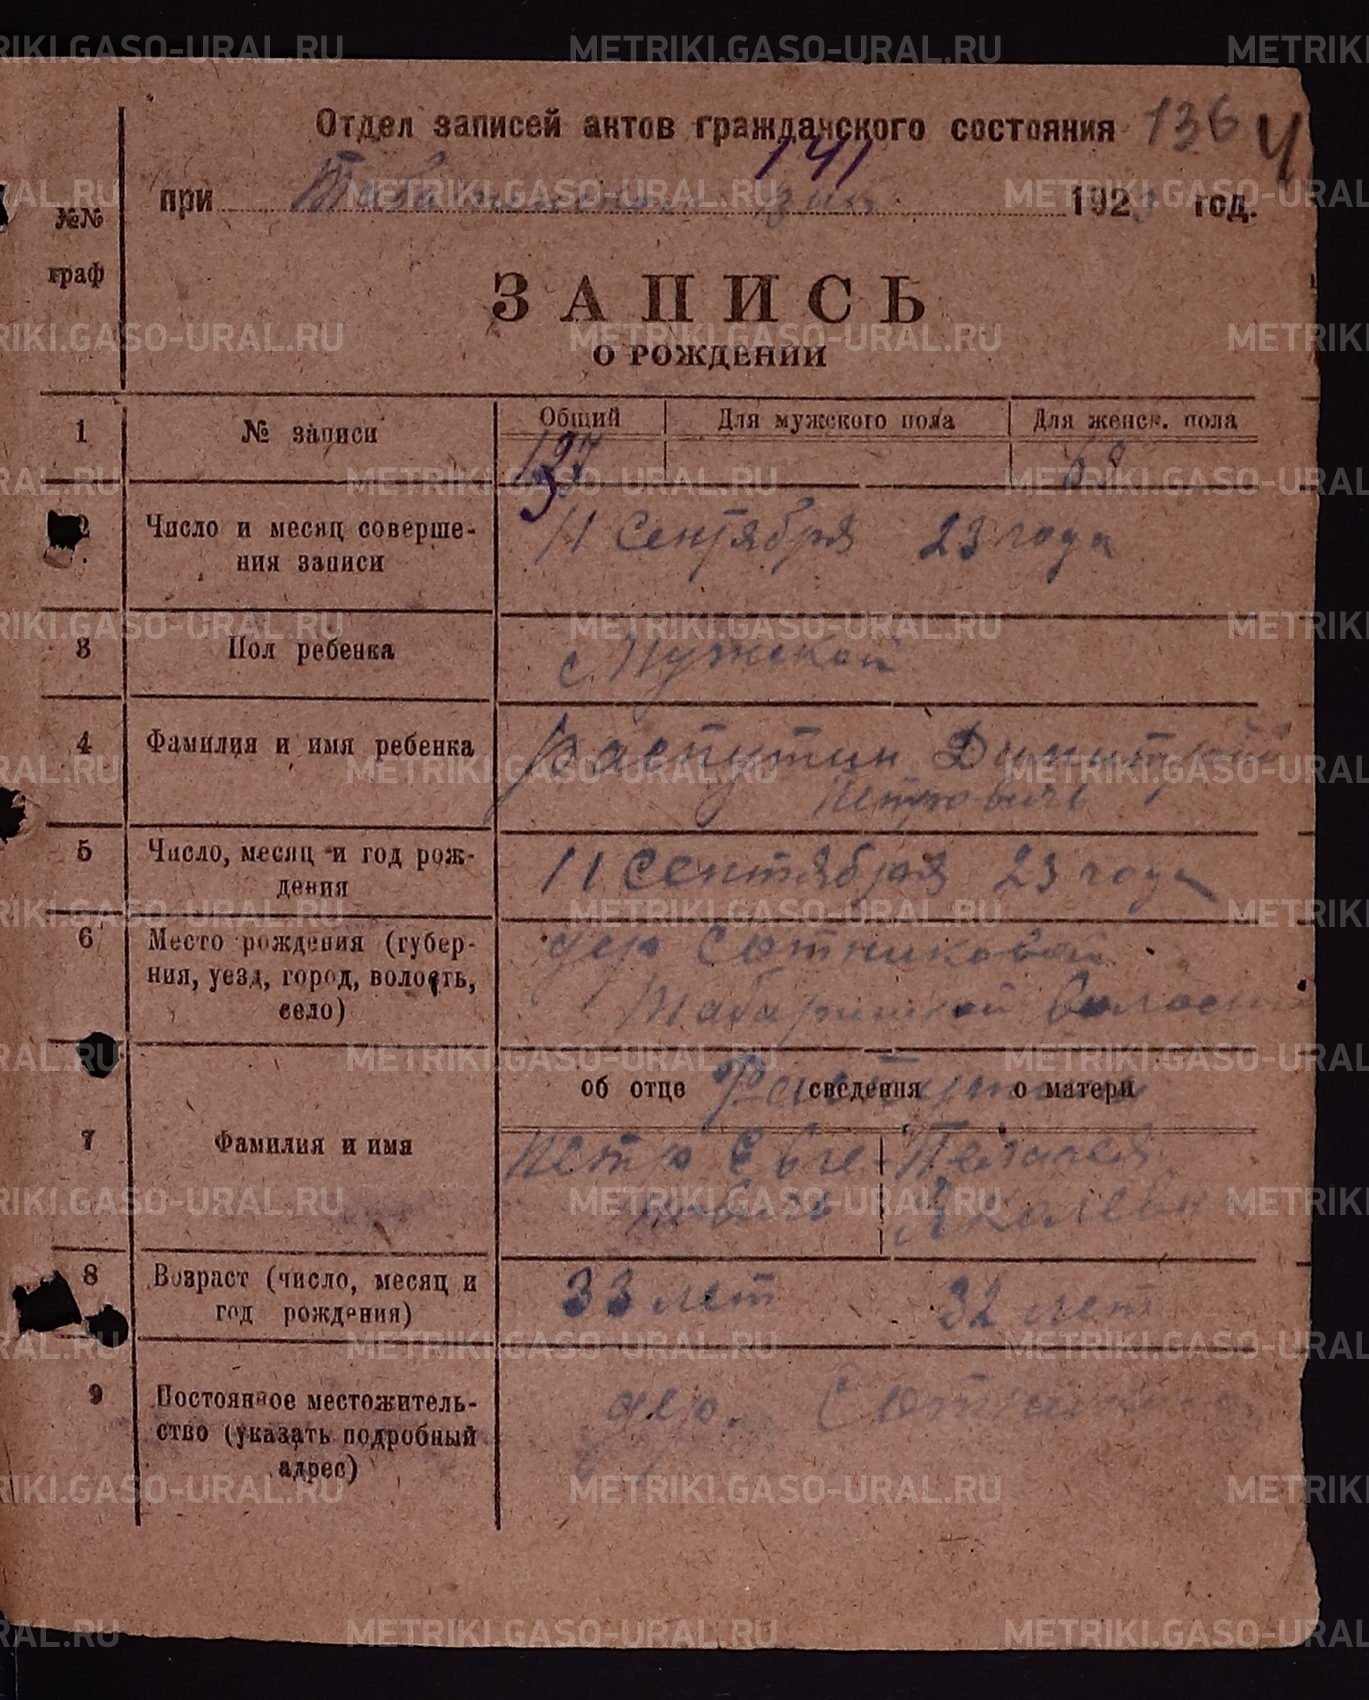 Отдел записей актов гражданского состояния 136 4
141
при 1923 год.
№№
граф
ЗАПИСЬ
О РОЖДЕНИИ
1 № записи Общий Для мужского пола Для женск. пола
137 68
2 Число и месяц соверше-
ния записи
11 Сентября 23 года
3 Пол ребенка Мужской
4 Фамилия и имя ребенка Распутин Димитрий
Петровичь
5 Число, месяц и год рож-
дения
11 Сентября 23 года
6 Место рождения (губер-
ния, уезд, город, волость,
село)
дер Сотниковой
Табаринской Волости
об отце сведения о матери
Распутин
7 Фамилия и имя
Петр Пелагея
8 Возраст (число, месяц и
год рождения)
33 лет 32 лет
9 Постоянное местожитель-
ство (указать подробный
адрес)
дер.
METRIKI.GASO-URAL.RU